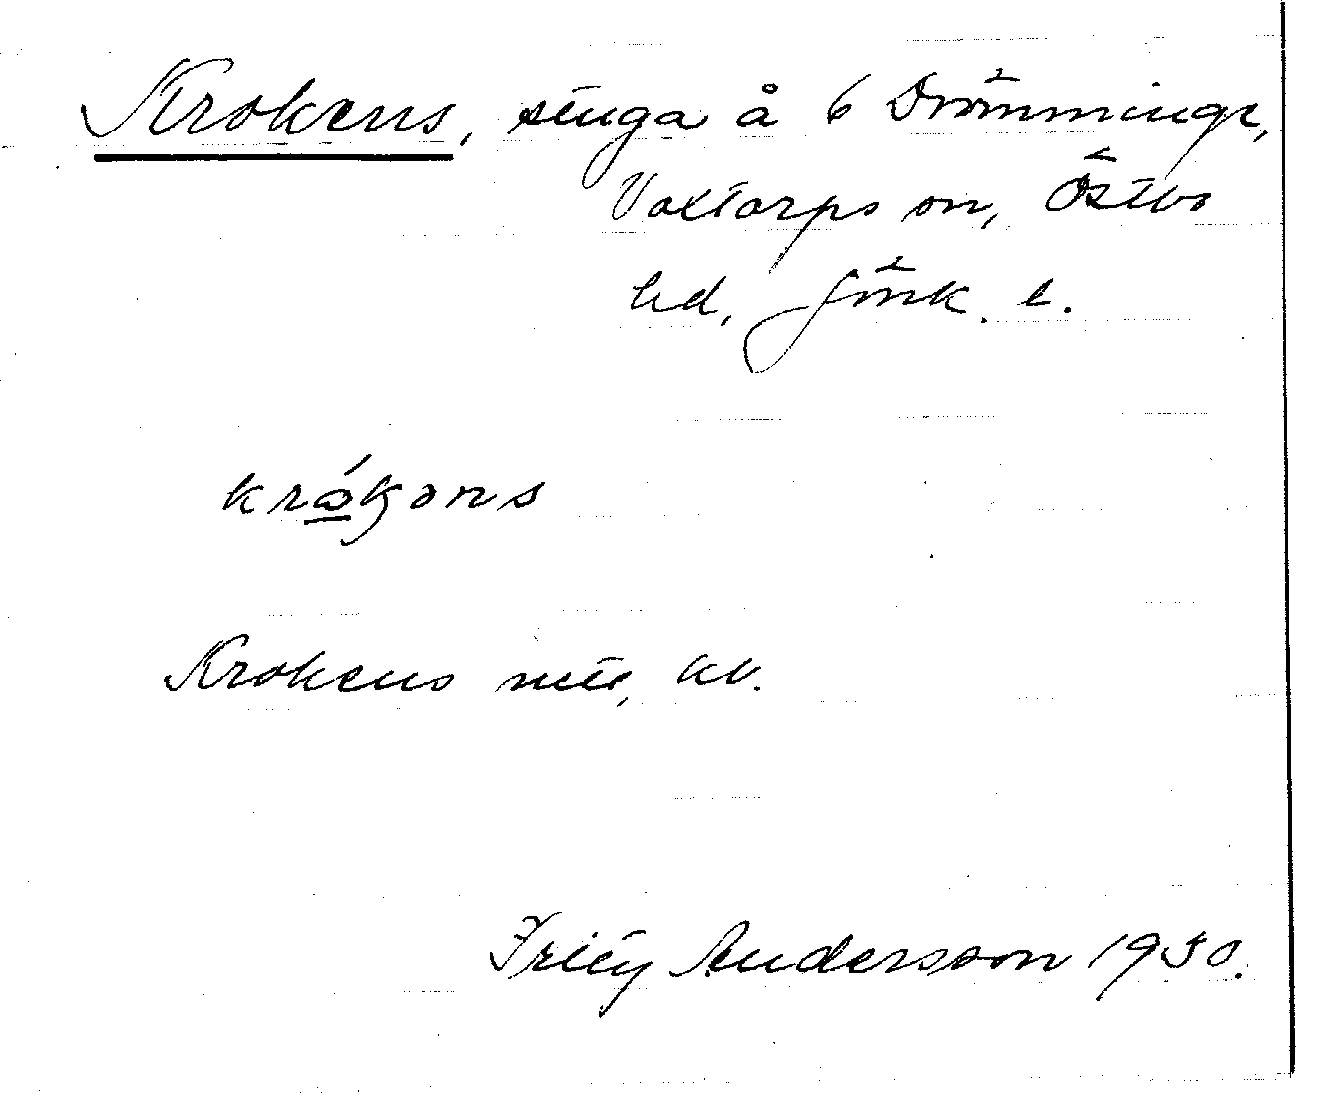 Krokens, stuga å 6 Drömminge,
Voxtorps sn, Östbo
hd, Jönk. l.
krǻkans
Krokens
Andersson 1930.